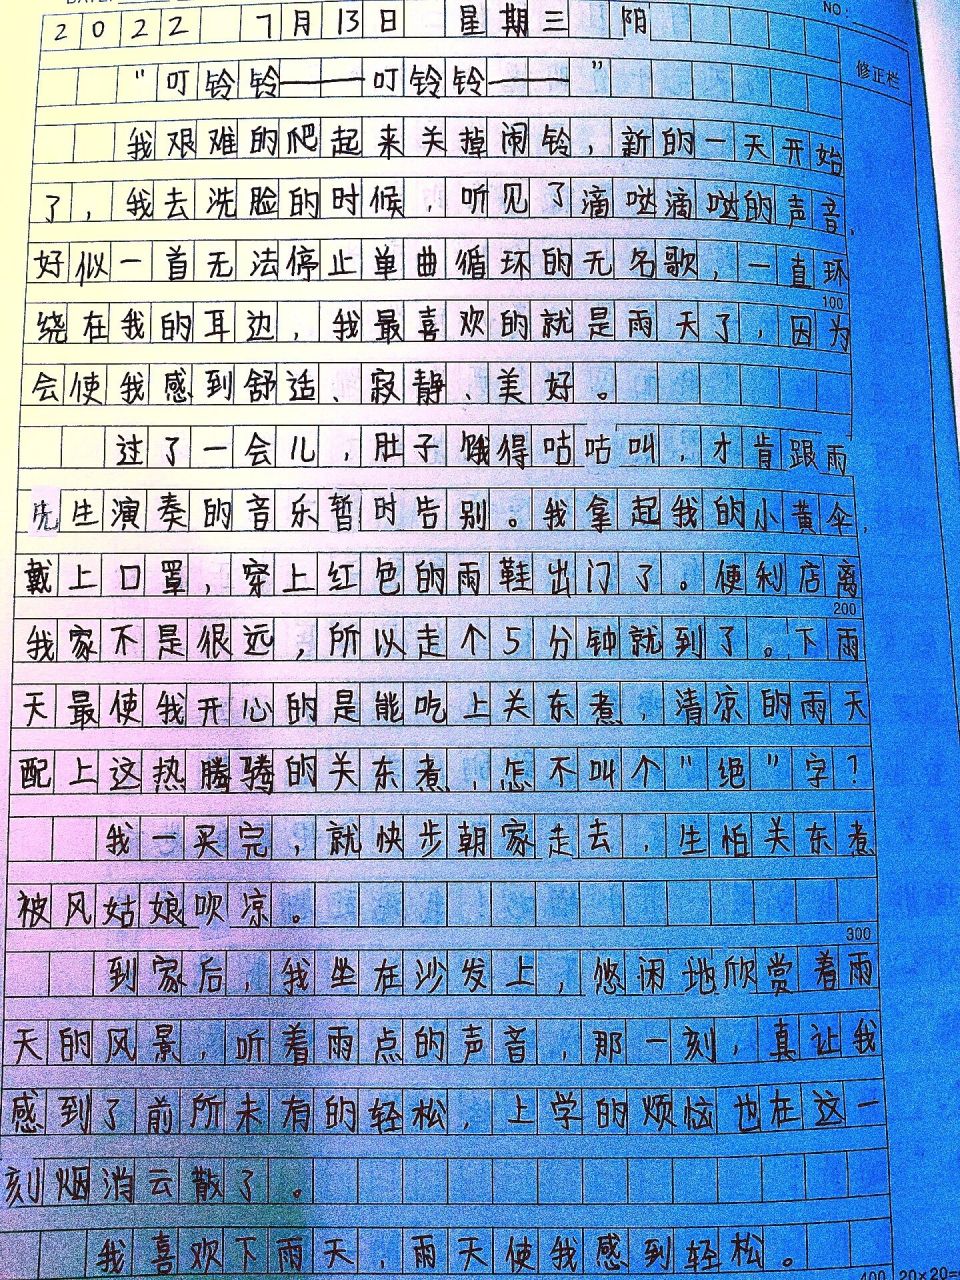 DATE
NO:
修正栏
2022 7月13日 星期三 阴
“叮铃铃——叮铃铃——”
我艰难的爬起来关掉闹铃，新的一天开始
了，我去洗脸的时候，听见了滴哒滴哒的声音，
好似一首无法停止单曲循环的无名歌，一直环
100
绕在我的耳边，我最喜欢的就是雨天了，因为
会使我感到舒适、寂静、美好。
过了一会儿，肚子饿得咕咕叫，才肯跟雨
先生演奏的音乐暂时告别。我拿起我的小黄伞，
戴上口罩，穿上红色的雨鞋出门了。便利店离
200
我家不是很远，所以走个5分钟就到了。下雨
天最使我开心的是能吃上关东煮，清凉的雨天
配上这热腾腾的关东煮，怎不叫个“绝”字？
我一买完，就快步朝家走去，生怕关东煮
被风姑娘吹凉。
300
到家后，我坐在沙发上，悠闲地欣赏着雨
天的风景，听着雨点的声音，那一刻，真让我
感到了前所未有的轻松，上学的烦恼也在这一
刻烟消云散了。
我喜欢下雨天，雨天使我感到轻松。
400 20×20=